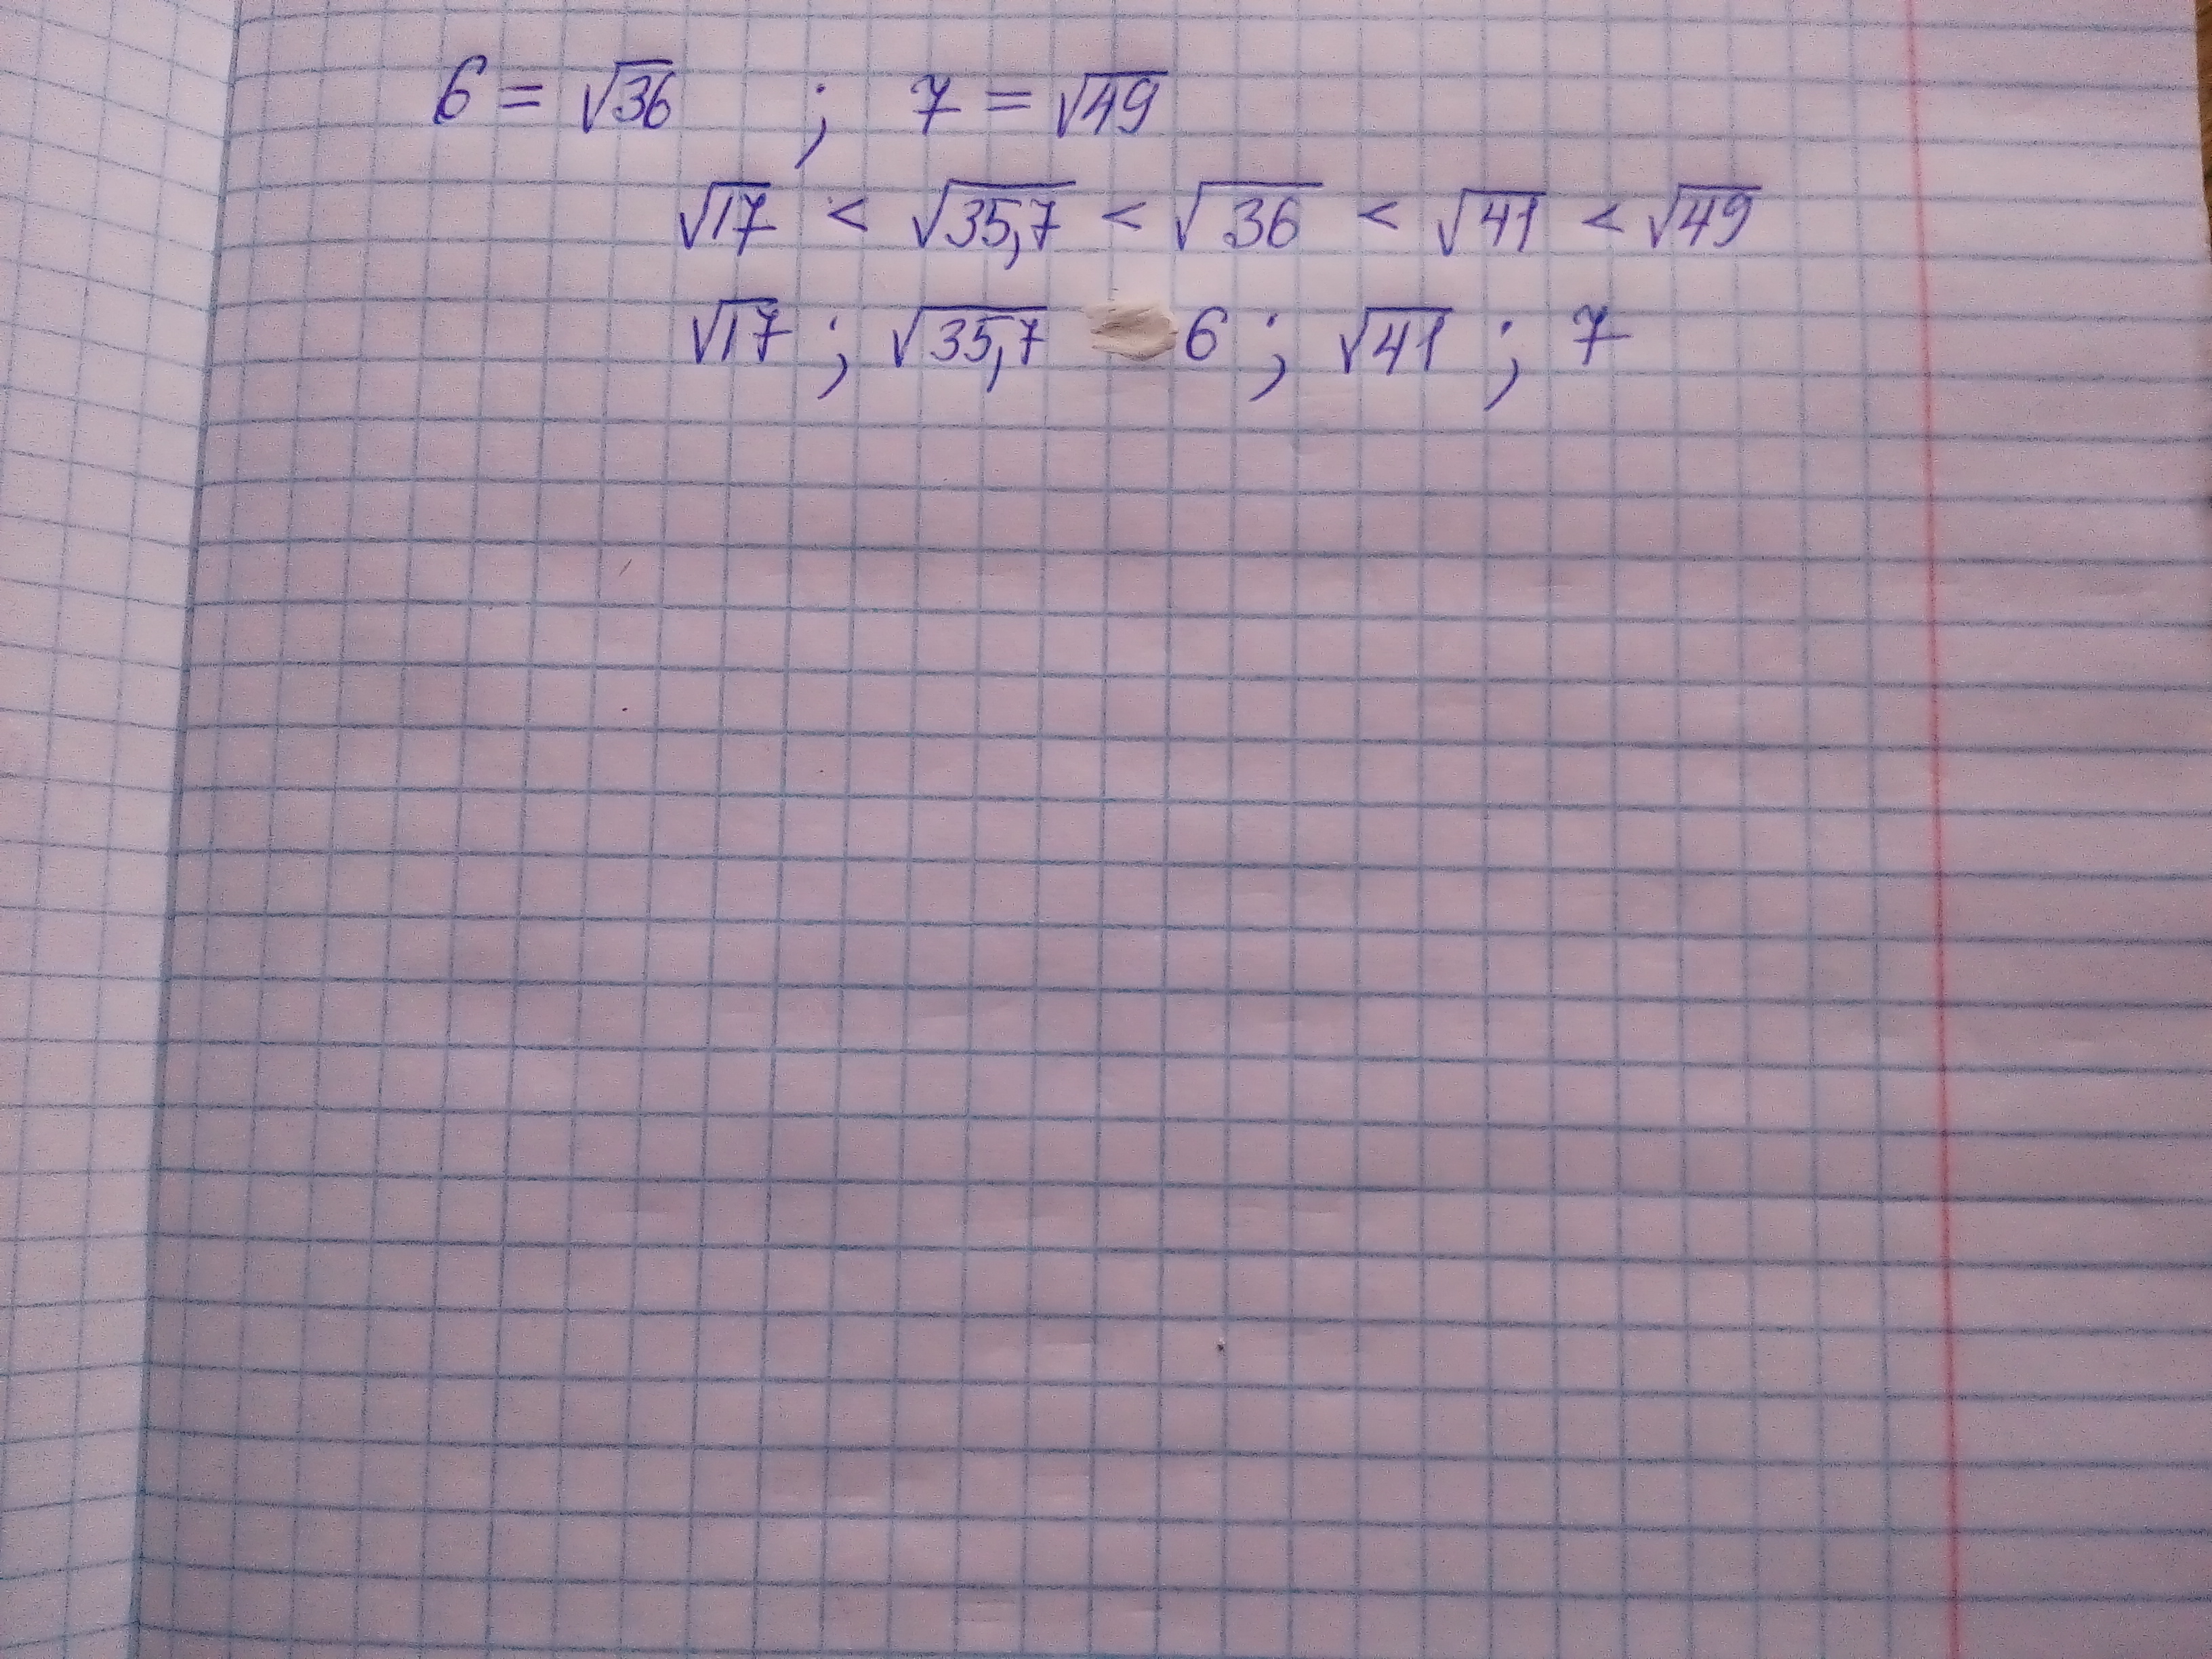 6 = √36 ; 7 = √49
√17 < √35,7 < √36 < √41 < √49
√17 ; √35,7 6 ; √41 ; 7